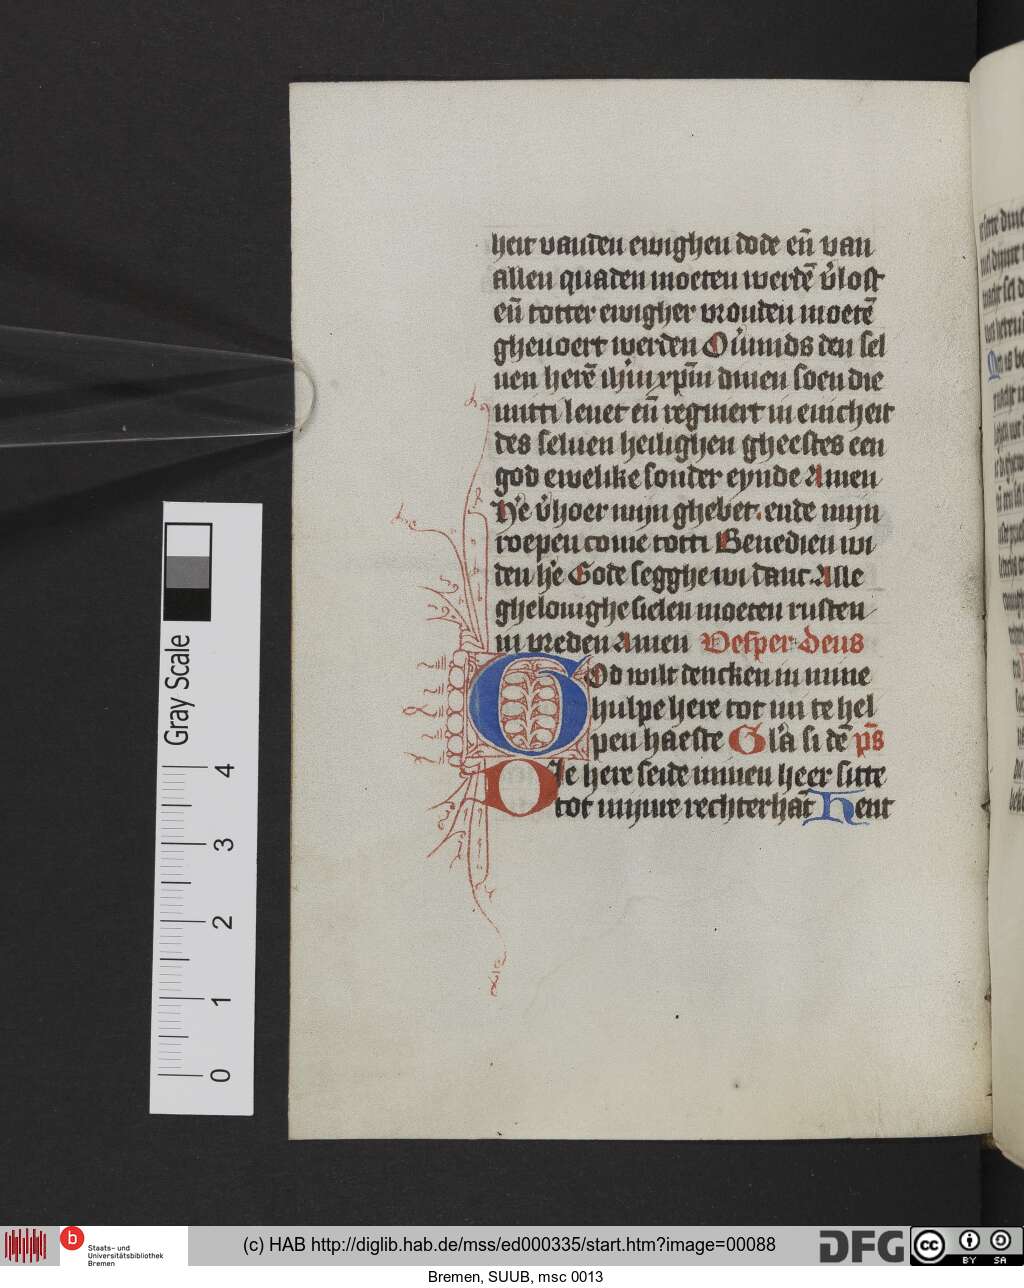 heit vanden ewighen dode en̄ van
allen quaden moeten werdē v̓lost
en̄ totter ewigher vrouden moetē
gheuoert werden Ou̓mids den sel
uen herē ih̄m xp̄m dinen soen die
mitti leuet en̄ regniert in enicheit
des seluen heilighen gheestes een
god ewelike sonder eynde Amen
H̓e v̓hoer mijn ghebet. ende mijn
roepen come totti Benedien wi
den h̓e Gode segghe wi danc. Alle
ghelouighe sielen moeten rusten
in vreden Amen Vesper Deus
God wilt dencken in mine
hulpe here tot mi te hel
pen haeste Gl̓a si dē p̄s
Die here seide minen heer sitte
tot mijnre rechterhāt Hent
Gray Scale
4
3
2
1
0
b Staats- und
Universitätsbibliothek
Bremen
(c) HAB http://diglib.hab.de/mss/ed000335/start.htm?image=00088
DFG
cc BY SA
Bremen, SUUB, msc 0013